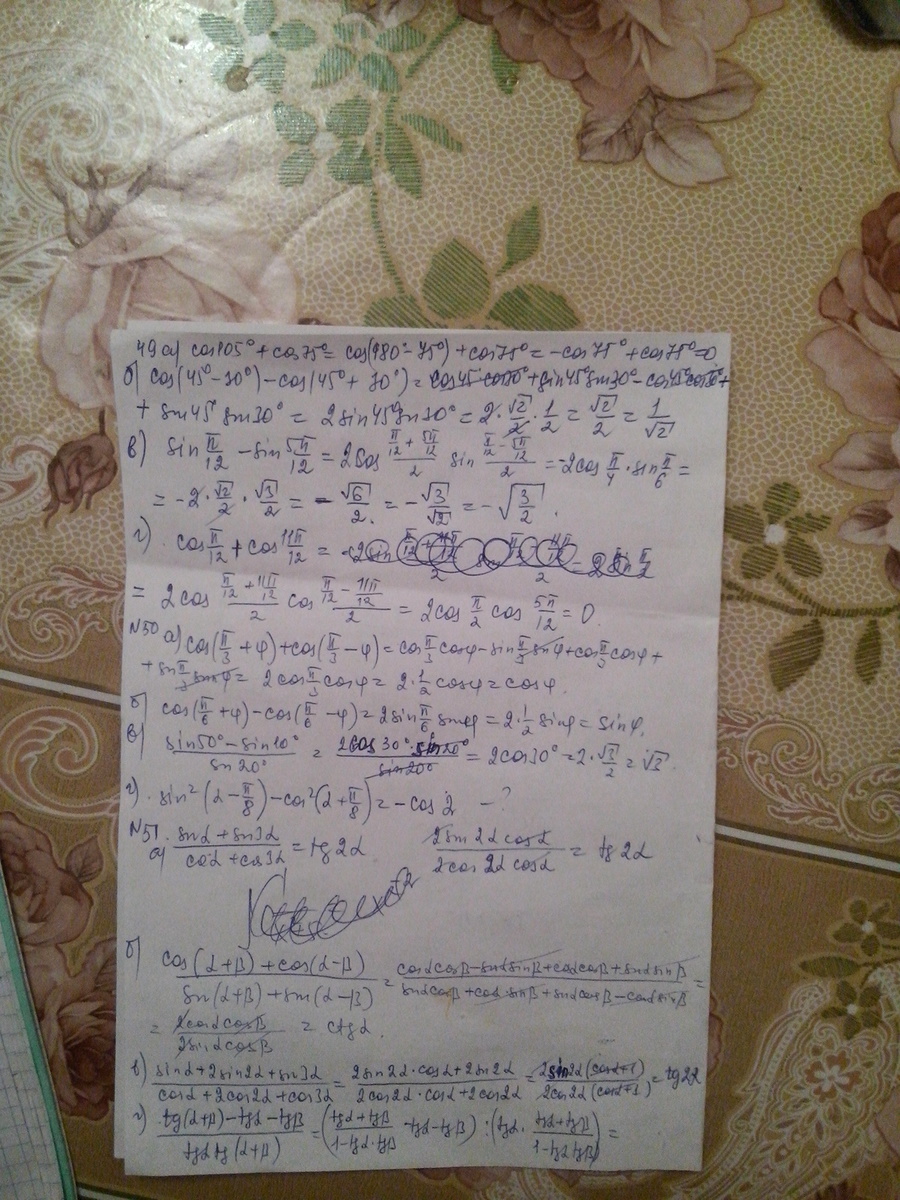 49 а) cos105° + cos75° = cos(180° - 75°) + cos75° = -cos75° + cos75° = 0
б) cos(45° - 30°) - cos(45° + 30°) = cos45° cos30° + sin45° sin30° - cos45° cos30° +
+ sin45° sin30° = 2 sin45° sin30° = 2 · √2/2 · 1/2 = √2/2 = 1/√2
в) sin π/12 - sin 5π/12 = 2cos (π/12 + 5π/12)/2 sin (π/12 - 5π/12)/2 = -2cos π/4 · sin π/6 =
= -2 · √2/2 · √3/2 = -√6/2 = -√3/√2 = -√(3/2).
г) cos π/12 + cos 11π/12 =
= 2cos (π/12 + 11π/12)/2 cos (π/12 - 11π/12)/2 = 2cos π/2 cos 5π/12 = 0.
№50 а) cos(π/3 + φ) + cos(π/3 - φ) = cos π/3 cosφ - sin π/3 sinφ + cos π/3 cosφ +
+ sin π/3 sinφ = 2cos π/3 cosφ = 2 · 1/2 cosφ = cosφ.
б) cos(π/6 + φ) - cos(π/6 - φ) = 2sin π/6 sinφ = 2 · 1/2 sinφ = sinφ.
в) (sin50° - sin10°)/(sin20°) = (2cos30° · sin20°)/(sin20°) = 2cos30° = 2 · √3/2 = √3.
г) sin²(α - π/8) - cos²(α + π/8) = -cos 2 - ?
№51. а) (sinα + sin3α)/(cosα + cos3α) = tg2α (2sin2α cosα)/(2cos2α cosα) = tg2α
б) (cos(α+β) + cos(α-β))/(sin(α+β) + sin(α-β)) = (cosαcosβ - sinαsinβ + cosαcosβ + sinαsinβ)/(sinαcosβ + cosα sinβ + sinαcosβ - cosαsinβ) =
= (2cosαcosβ)/(2sinαcosβ) = ctgα.
в) (sinα + 2sin2α + sin3α)/(cosα + 2cos2α + cos3α) = (2sin2α · cosα + 2sin2α)/(2cos2α · cosα + 2cos2α) = (2sin2α (cosα+1))/(2cos2α (cosα+1)) = tg2α
г) (tg(α+β) - tgα - tgβ)/(tgα tg(α+β)) = ((tgα + tgβ)/(1 - tgα · tgβ) - tgα - tgβ) : (tgα · (tgα + tgβ)/(1 - tgα tgβ)) =